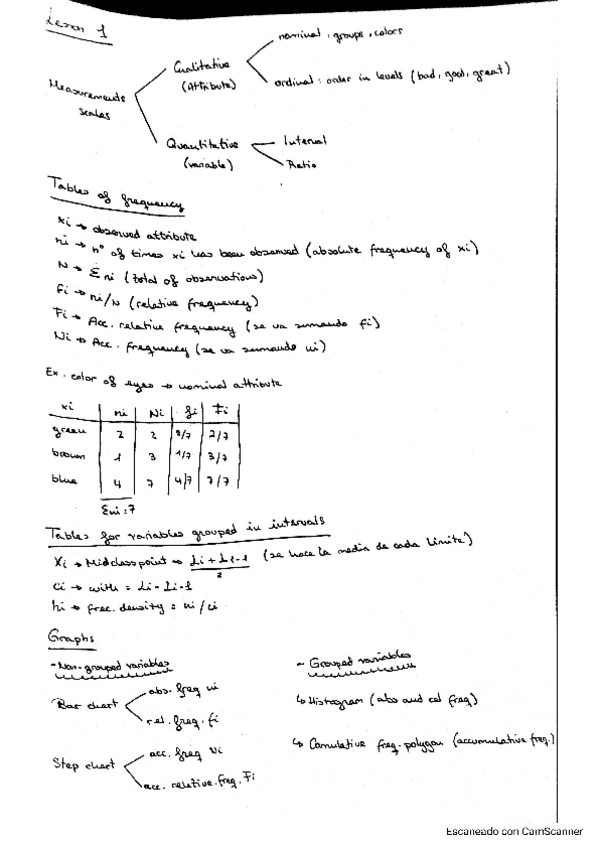 Lesson 1
Measurements scales
Qualitative (Attribute)
nominal: groups, colors
ordinal: order in levels (bad, good, great)
Quantitative (variable)
Interval
Ratio
Tables of frequency
xi → observed attribute
ni → nº of times xi has been observed (absolute frequency of xi)
N → Σni (total of observations)
fi → ni/N (relative frequency)
Fi → Acc. relative frequency (se va sumando fi)
Ni → Acc. frequency (se va sumando ni)
Ex. color of eyes → nominal attribute
xi ni Ni fi Fi
green 2 2 2/7 2/7
brown 1 3 1/7 3/7
blue 4 7 4/7 7/7
Σni=7
Tables for variables grouped in intervals
Xi → Midclasspoint → Li + Li-1 / 2 (se hace la media de cada límite)
ci → with = Li - Li-1
hi → frec. density = ni/ci
Graphs
- Non-grouped variables
Bar chart
abs. freq ni
rel. freq. fi
Step chart
acc. freq Ni
acc. relative. freq. Fi
- Grouped variables
↳ Histogram (abs and rel freq)
↳ Comulative freq. polygon (accumulative freq.)
Escaneado con CamScanner